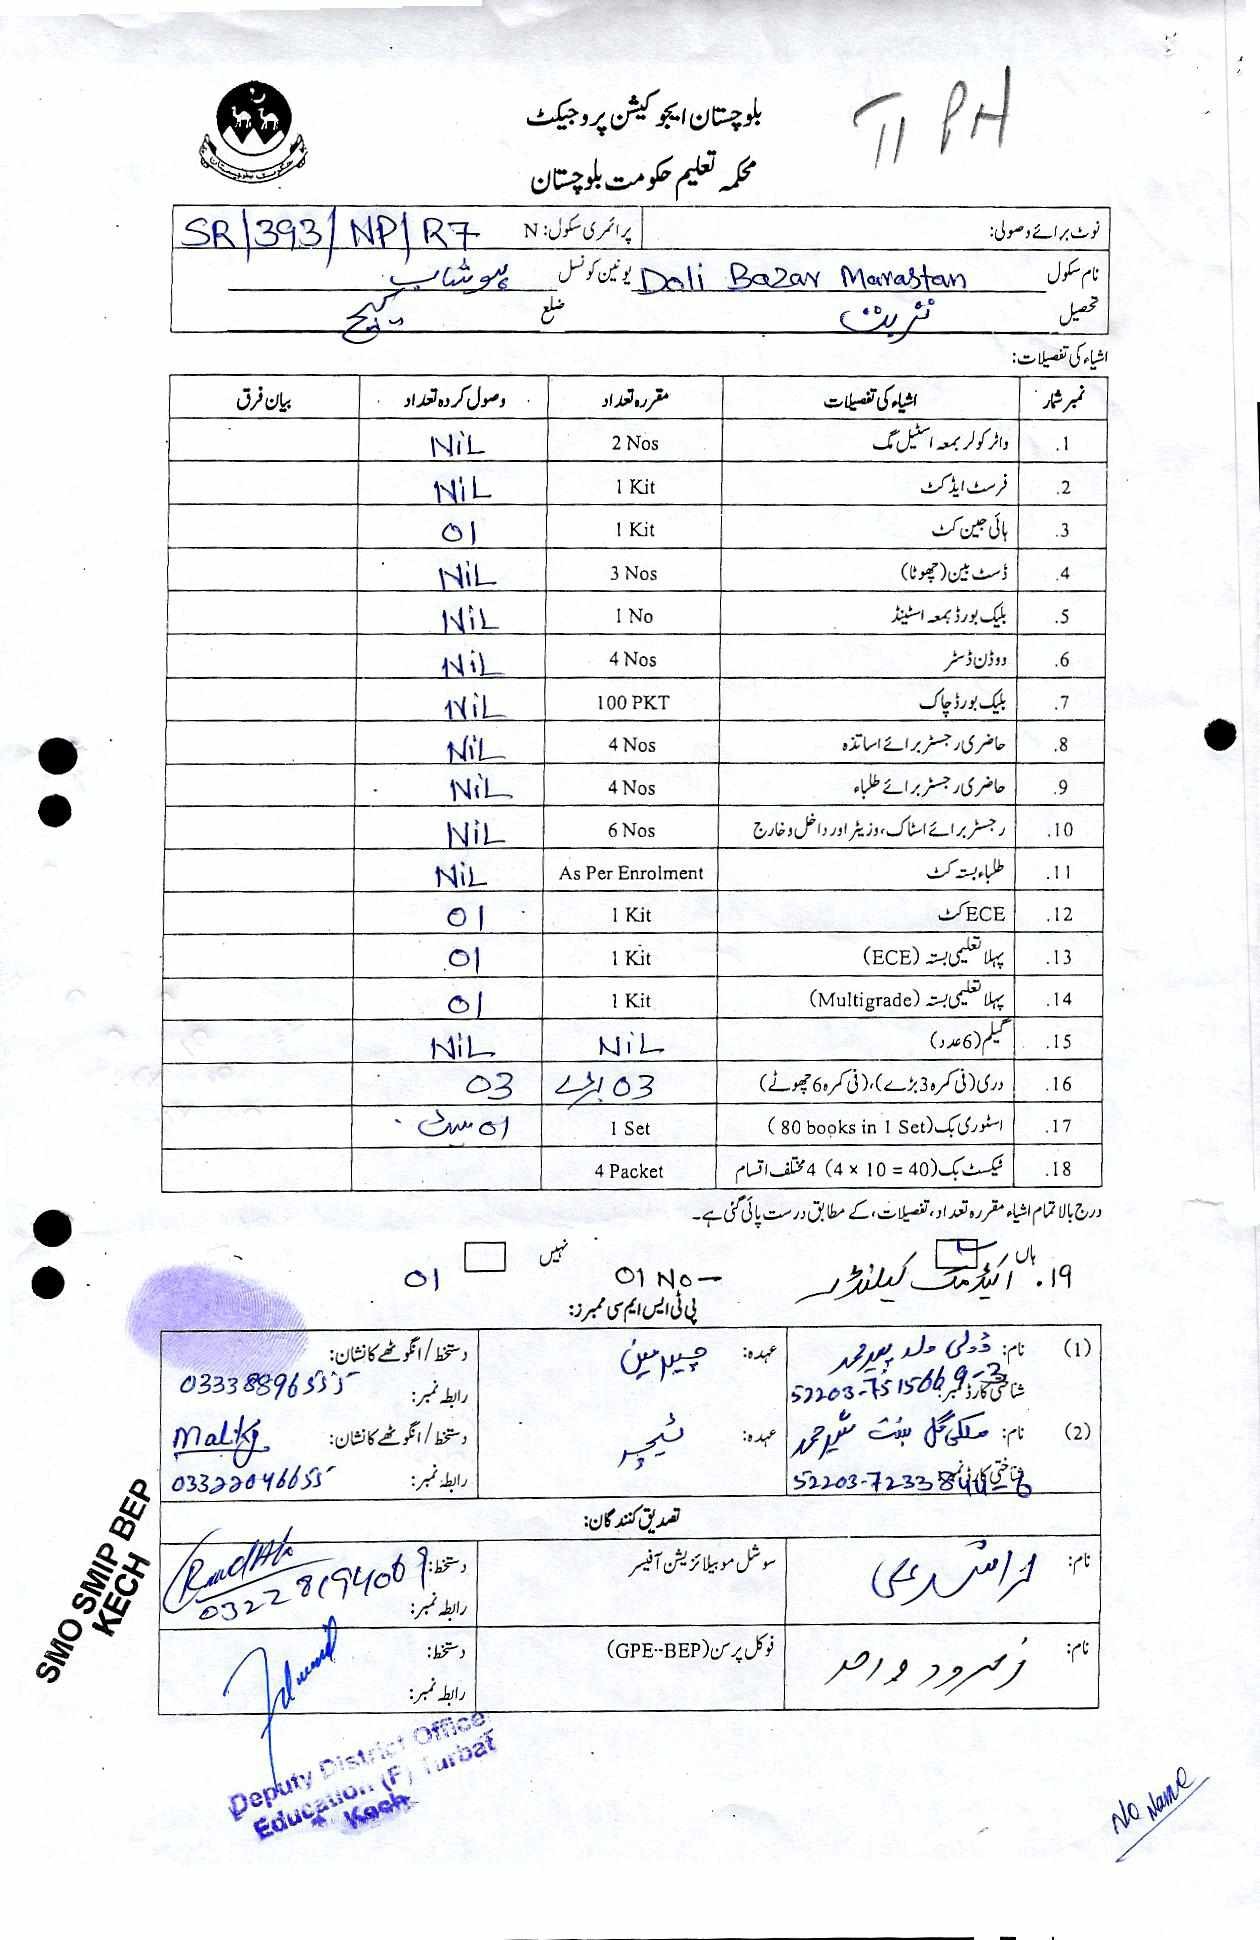 II PH
بلوچستان ایجوکیشن پروجیکٹ
محکمہ تعلیم حکومت بلوچستان
نوٹ برائے وصولی: پرائمری سکول: N SR/393/NP/R7
نام سکول Dali Bazar Marastan یونین کونسل ہوشاب
تحصیل تربت ضلع کیچ
اشیاء کی تفصیلات:
نمبر شمار اشیاء کی تفصیلات مقررہ تعداد وصول کردہ تعداد بیان فرق
1. واٹر کولر بمعہ اسٹیل مگ 2 Nos NiL
2. فرسٹ ایڈ کٹ 1 Kit NiL
3. ہائی جین کٹ 1 Kit 01
4. ڈسٹ بین (چھوٹا) 3 Nos NiL
5. بلیک بورڈ بمعہ اسٹینڈ 1 No NiL
6. ووڈن ڈسٹر 4 Nos NiL
7. بلیک بورڈ چاک 100 PKT NiL
8. حاضری رجسٹر برائے اساتذہ 4 Nos NiL
9. حاضری رجسٹر برائے طلباء 4 Nos NiL
10. رجسٹر برائے اسٹاک، وزیٹر اور داخل و خارج 6 Nos NiL
11. طلباء بستہ کٹ As Per Enrolment NiL
12. ECE کٹ 1 Kit 01
13. پہلا تعلیمی بستہ (ECE) 1 Kit 01
14. پہلا تعلیمی بستہ (Multigrade) 1 Kit 01
15. گیلم (6 عدد) NiL NiL
16. دری (فی کمرہ 3 بڑے)، (فی کمرہ 6 چھوٹے) 03 بڑے 03
17. اسٹوری بک (80 books in 1 Set) 1 Set 01 سیٹ
18. ٹیکسٹ بک (4 × 10 = 40) 4 مختلف اقسام 4 Packet
درج بالا تمام اشیاء مقررہ تعداد، تفصیلات، کے مطابق درست پائی گئی ہے۔
ہاں نہیں
۱۹. اکیڈمک کیلنڈر 01 No 01
پی ٹی ایس ایم سی ممبرز:
(1) نام: عہدہ: چیئرمین دستخط/انگوٹھے کا نشان:
شناختی کارڈ نمبر: 52203-7515669-3 رابطہ نمبر: 03338896555
(2) نام: عہدہ: ٹیچر دستخط/انگوٹھے کا نشان: Malkg
شناختی کارڈ نمبر: رابطہ نمبر: 03322046655
تصدیق کنندگان:
نام: سوشل موبیلائزیشن آفیسر دستخط:
رابطہ نمبر: 03228194069
نام: فوکل پرسن (GPE--BEP) دستخط:
رابطہ نمبر:
SMO SMIP BEP
KECH
Deputy District Office
Education (F) Turbat
Kech
No Name